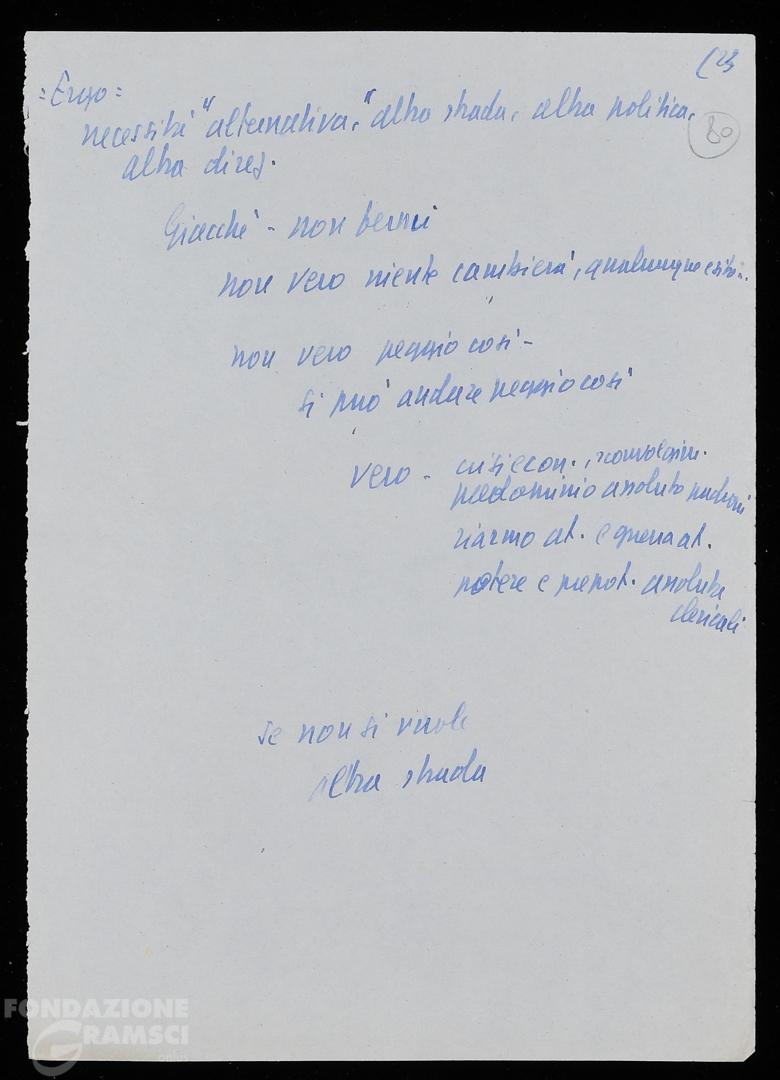 (23
= Ergo =
80
necessità "alternativa," altra strada, altra politica,
altra direz.
Giacché - non
non vero niente cambierà, qualunque esito..
non vero peggio così -
si può andare peggio così
vero - crisi econ.,
predominio assoluto padroni
riarmo at. e guerra at.
potere e prepot. assoluta
clericali
se non si vuole
altra strada
FONDAZIONE
GRAMSCI
onlus